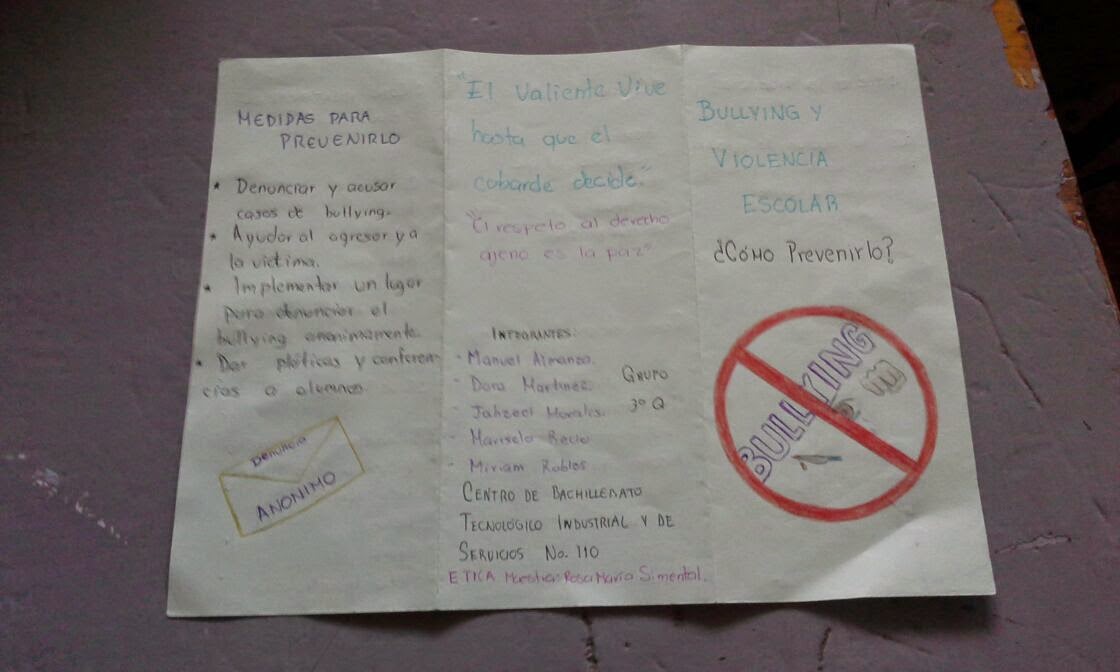 MEDIDAS PARA
PREVENIRLO
* Denunciar y acusar
casos de bullying.
* Ayudar al agresor y a
la victima.
* Implementar un lugar
para denunciar el
bullying anonimamente.
* Dar pláticas y conferen-
cias a alumnos
Denuncia
ANONIMO
"El Valiente Vive
hasta que el
cobarde decide."
"El respeto al derecho
ajeno es la paz"
INTEGRANTES:
- Manuel Almanza.
- Dora Martinez
- Jahzeel Morales.
- Marisela Recio
- Miriam Robles
GRUPO
3º Q
CENTRO DE BACHILLERATO
TECNOLÓGICO INDUSTRIAL Y DE
SERVICIOS No. 110
ETICA Maestra: Rosa María Simental.
BULLYING Y
VIOLENCIA
ESCOLAR
¿Cómo Prevenirlo?
BULLYING